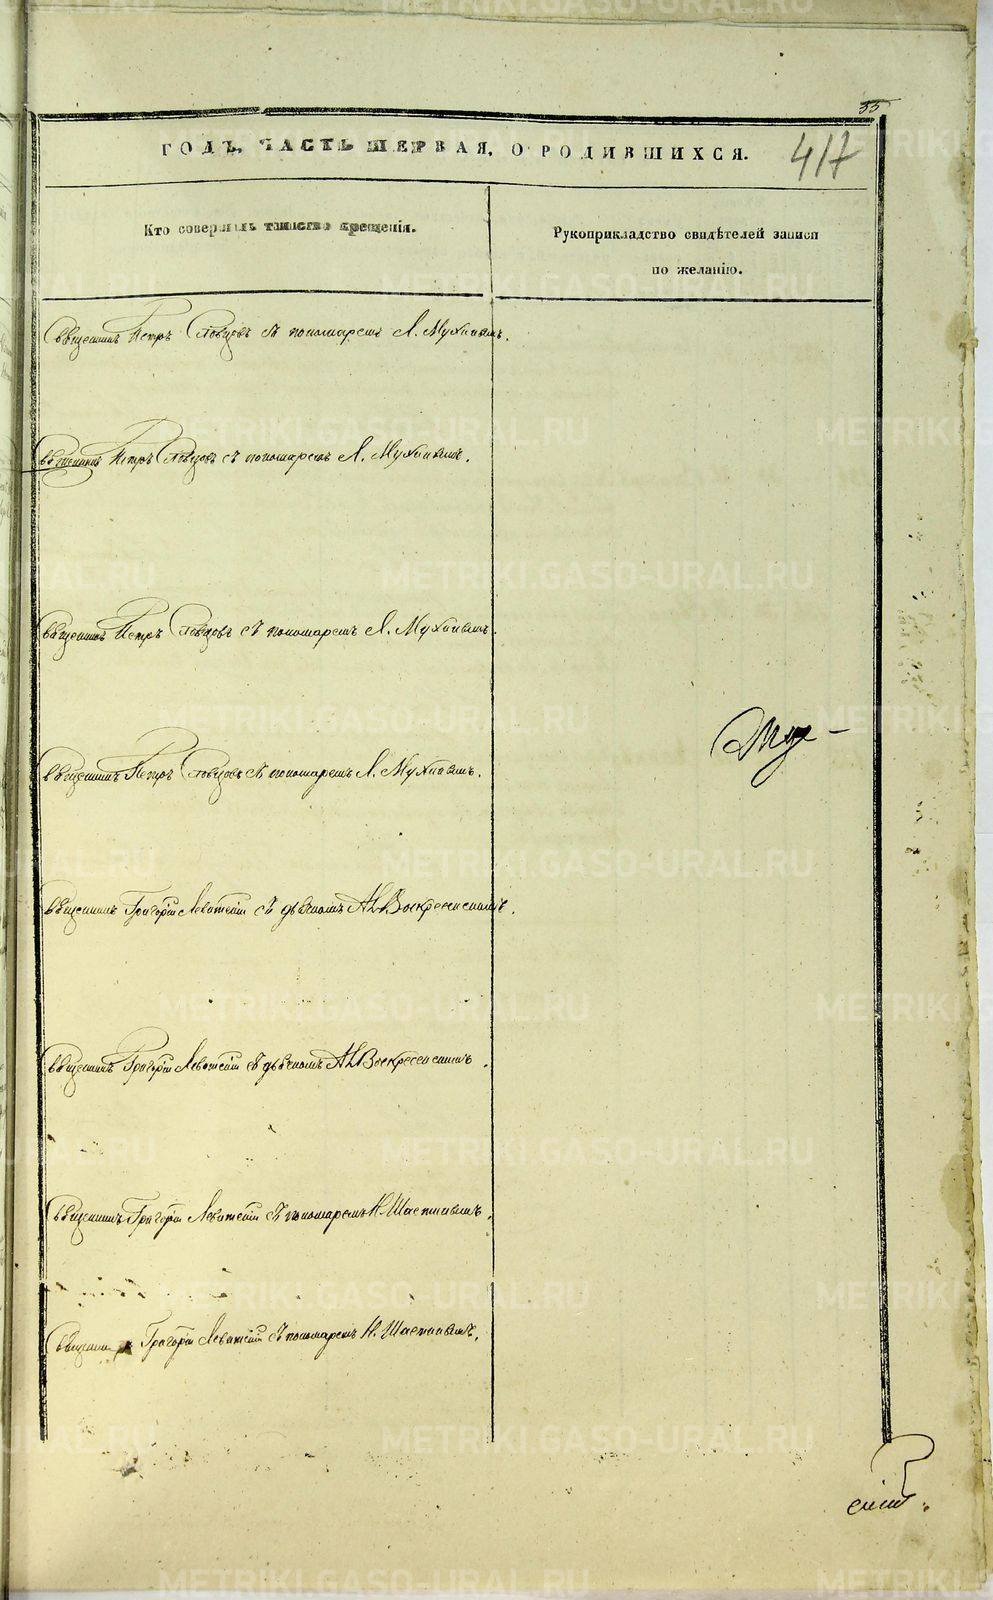 35
ГОДЪ, ЧАСТЬ ПЕРВАЯ, О РОДИВШИХСЯ.
417
Кто совершалъ таинство крещенія.
Рукоприкладство свидѣтелей записи
по желанію.
Священникъ Петръ Словцовъ съ пономаремъ А. Мухинымъ.
Священникъ Петръ Словцовъ съ пономаремъ А. Мухинымъ.
Священникъ Петръ Словцовъ съ пономаремъ А. Мухинымъ.
Священникъ Петръ Словцовъ съ пономаремъ А. Мухинымъ.
Священникъ Григорій Левитскій съ дьячкомъ Воскресенскимъ.
Священникъ Григорій Левитскій съ дьячкомъ Воскресенскимъ.
Священникъ Григорій Левитскій съ пономаремъ Н. Шастинымъ.
Священникъ Григорій Левитскій съ пономаремъ Н. Шастинымъ.
METRIKI.GASO-URAL.RU